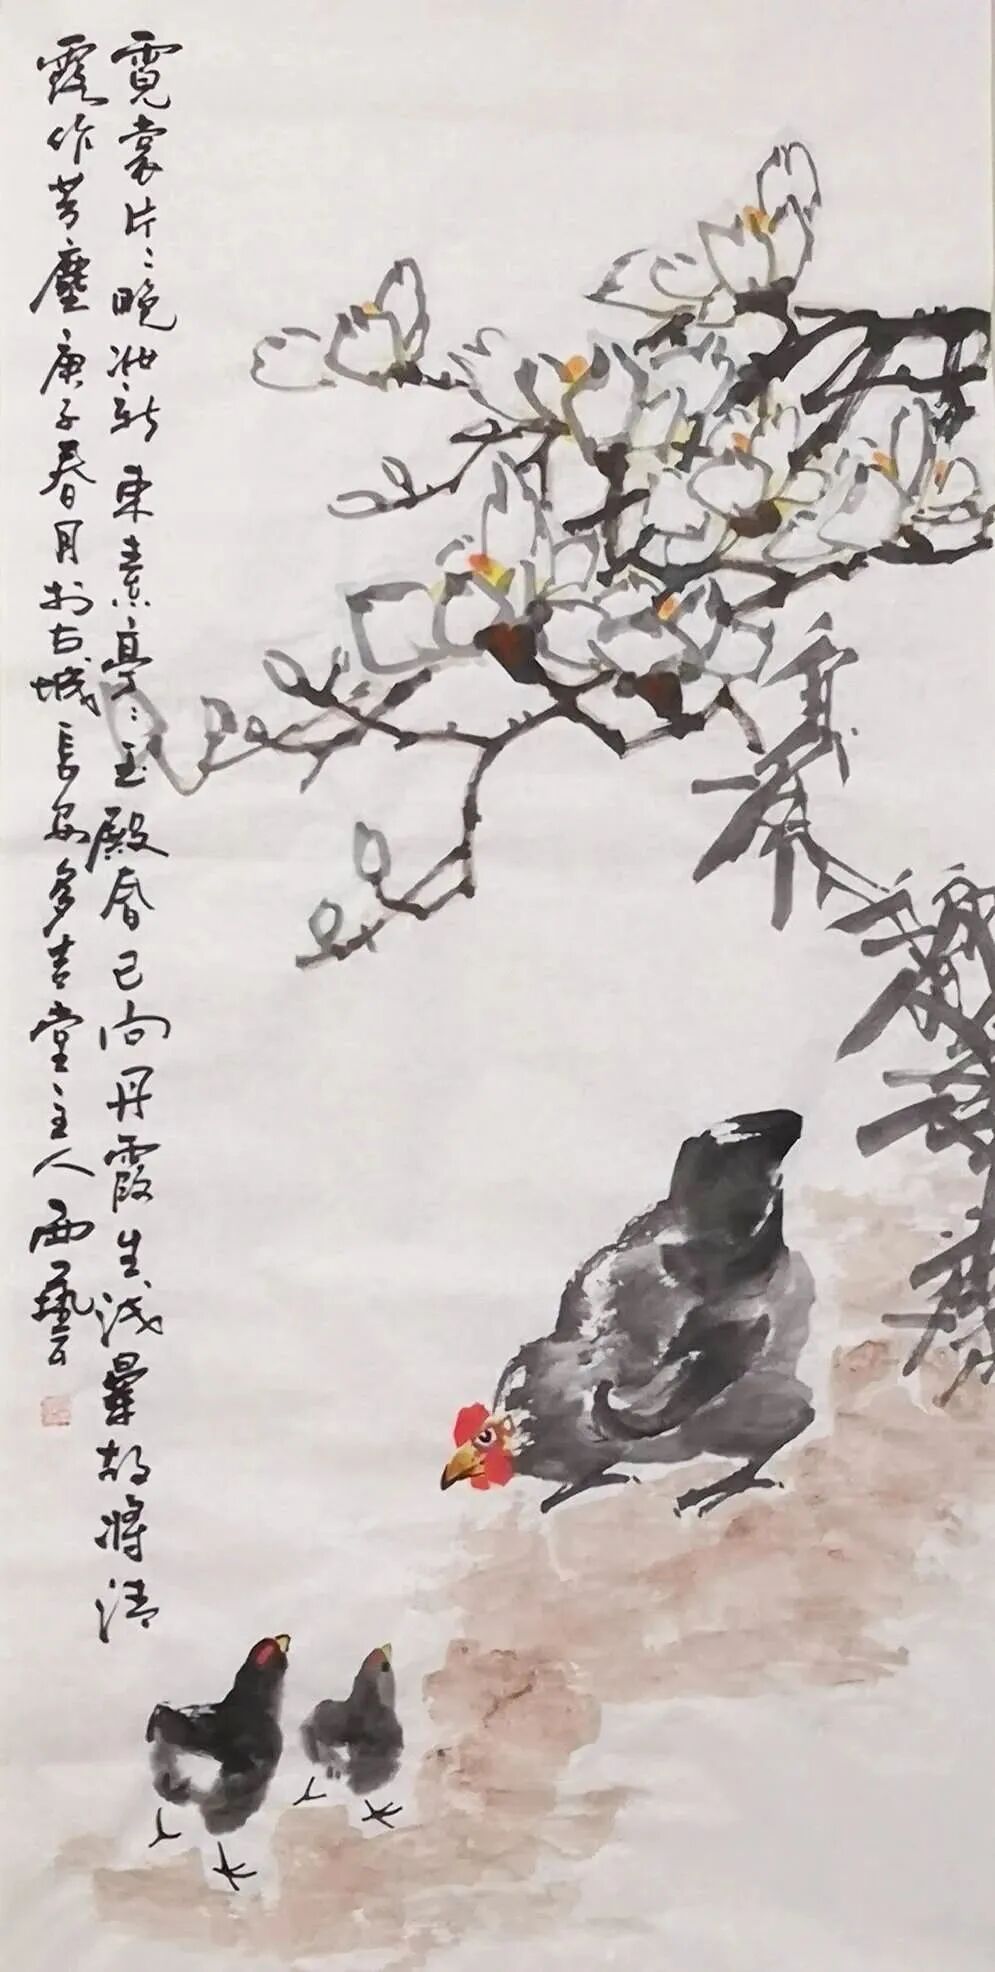 霓裳片〻晚妝新束素亭〻玉殿春已向丹霞生浅暈故将清
露作芳塵庚子春月於古城長安多吉堂主人西藝